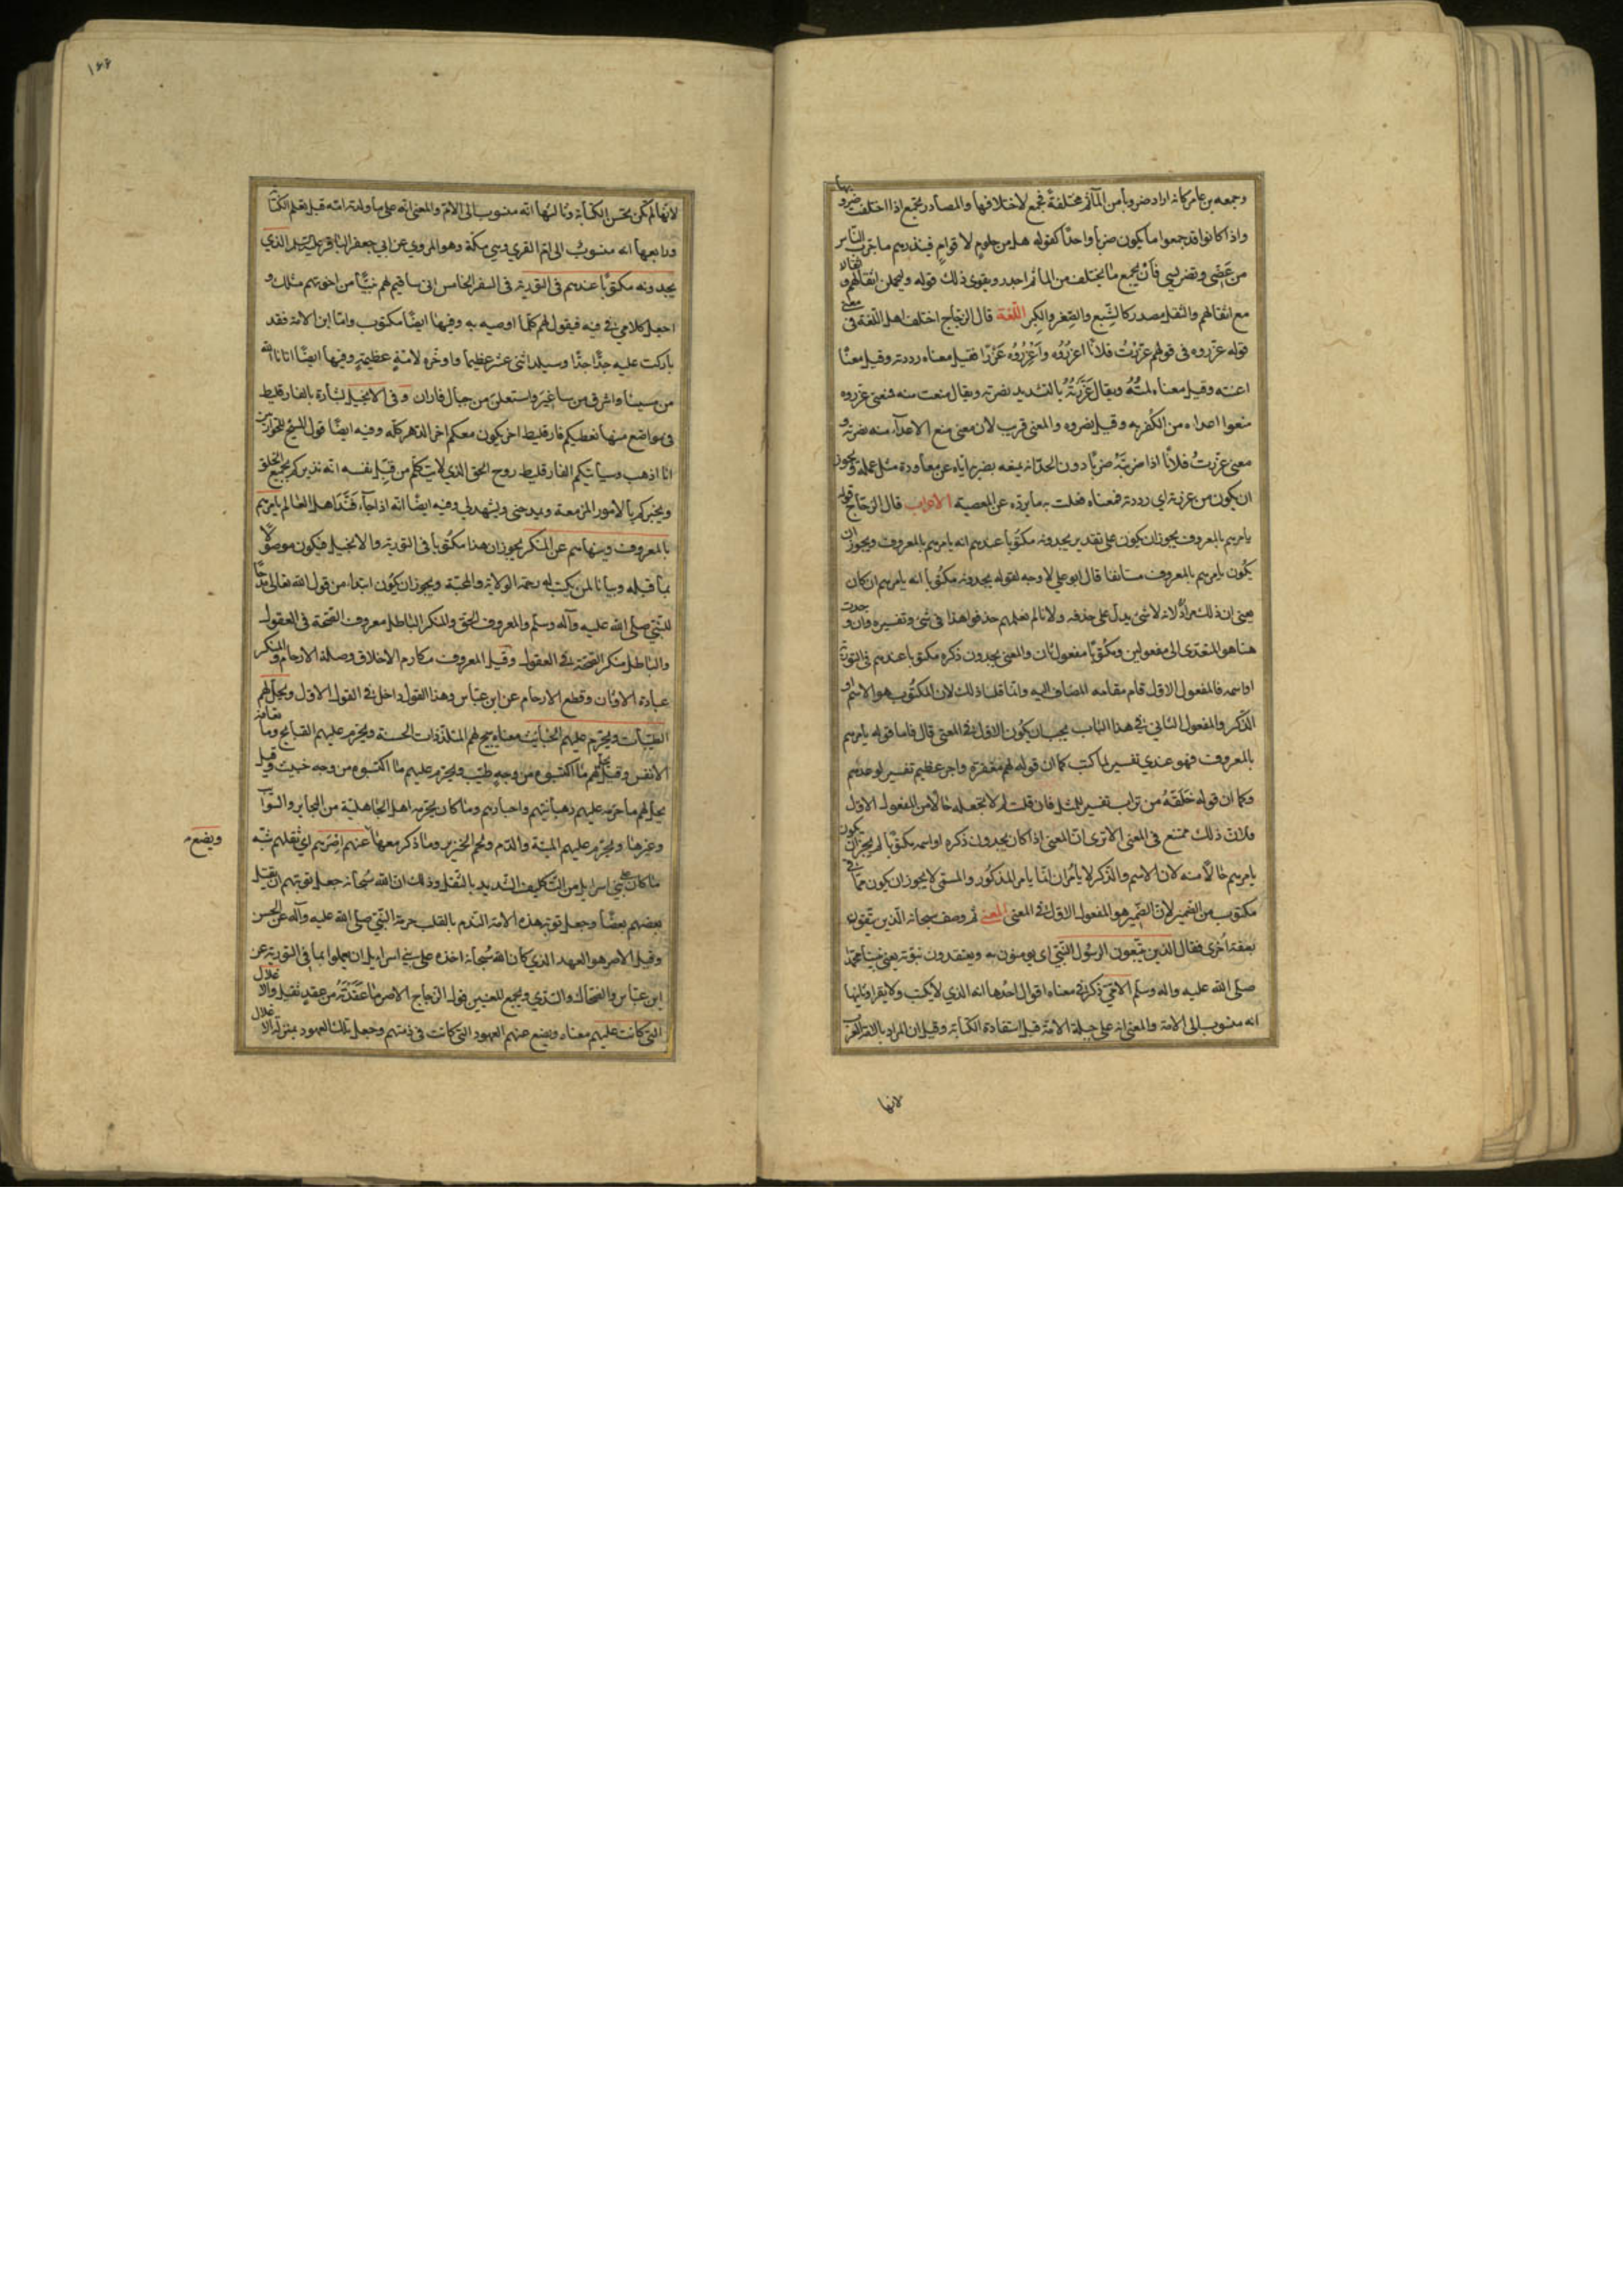 وجمعه بن عامر كانه اراد ضروبا من المآثم مختلفة فجمع لاختلافها والمصادر تجمع اذا اختلفت ضروبها
واذا كانوا قد جمعوا ما يكون ضربا واحدا كقوله هل من حلوم لاقوام فينذرهم ما جرب الناس
من عضى وتضريسي فأن يجمع ما يختلف من المأثم اجدر ويقوى ذلك قوله وليحملن اثقالهم واثقالا
مع اثقالهم والثقل مصدر كالشبع والصغر والكبر اللغة قال الزجاج اختلف اهل اللغة في معنى
قوله عزروه في قولهم عزرت فلانا اعزره واعزره عزرا فقيل معناه رددته وقيل معناه
اعنته وقيل معناه لمته ويقال عزرته بالتشديد نصرته ويقال منعت منه فمعنى عزروه
منعوا اعداءه من الكفر به وقيل نصروه والمعنى قريب لان معنى منع الاعداء منه نصرته و
معنى عزرت فلانا اذا ضربته ضربا دون الحد انه يمنعه بضربه اياه عن معاودة مثل عمله ويجوز
ان يكون من عزرته اي رددته فمعناه فعلت به ما يرده عن المعصية الاعراب قال الزجاج قوله
يامرهم بالمعروف يجوز ان يكون على تقدير يجدونه مكتوبا عندهم انه يامرهم بالمعروف ويجوز ان
يكون يامرهم بالمعروف مستانفا قال ابو علي لا وجه لقوله يجدونه مكتوبا انه يامرهم ان كان
يعني ان ذلك مراد لانه لا شئ يدل على حذفه ولانا لم نعلمهم حذفوا هذا في شئ وتفسيره وان وجدت
هنا هو المتعدى الى مفعولين ومكتوبا مفعول ثان والمعنى يجدون ذكره مكتوبا عندهم في التورية
او اسمه فالمفعول الاول قام مقامه المضاف اليه وانما قلنا ذلك لان المكتوب هو الاسم او
الذكر والمفعول الثاني في هذا الباب يجب ان يكون الاول في المعنى قال فاما قوله يامرهم
بالمعروف فهو عندي تفسير لما كتب كما ان قوله لهم مغفرة واجر عظيم تفسير لوعدهم
وكما ان قوله خلقه من تراب تفسير للمثل فان قلت لم لا تجعله حالا من المفعول الاول
فلان ذلك ممتنع في المعنى الا ترى ان المعنى اذا كان يجدون ذكره او اسمه مكتوبا لم يجز ان يكون
يامرهم حالا منه لان الاسم والذكر لا يامران انما يامر المذكور والمسمى لا يجوز ان يكون مما في
مكتوب من الضمير لان الضمير هو المفعول الاول في المعنى المعنى ثم وصف سبحانه الذين يتقون
بصفة اخرى فقال الذين يتبعون الرسول النبي اى يومنون به ويعتقدون نبوته يعني نبينا محمدا
صلى الله عليه واله وسلم الامي ذكر في معناه اقوال احدها انه الذي لا يكتب ولا يقرا وثانيها
انه منسوب الى الامة والمعنى انه على جبلة الامة قبل استفادة الكتابة وقيل ان المراد بالامة العرب
لانها
١٦٦
لانها لم تكن تحسن الكتابة وثالثها انه منسوب الى الام والمعنى انه على ما ولدته امه قبل تعلم الكتابة
ورابعها انه منسوب الى ام القرى وهي مكة وهو المروي عن ابي جعفر الباقر الذي
يجدونه مكتوبا عندهم في التورية في السفر الخامس اني ساقيم لهم نبيا من اخوتهم مثلك و
اجعل كلامي في فيه فيقول لهم كلما اوصيه به وفيها ايضا مكتوب واما ابن الامة فقد
باركت عليه جدا جدا وسيلد اثنى عشر عظيما واوخره لامة عظيمة وفيها ايضا اتانا الله
من سينا واشرق من ساغير واستعلن من جبال فاران وفي الانجيل بشارة بالفارقليط
في مواضع منها نعطيكم فارقليط اخر يكون معكم اخر الدهر كله وفيه ايضا قول المسيح للحواريين
انا اذهب وسياتيكم الفارقليط روح الحق الذي لا يتكلم من قبل نفسه انه نذيركم بجميع الخلق
ويخبركم بالامور المزمعة ويمدحني ويشهد لي وفيه ايضا انه اذا جاء فند اهل العالم يامرهم
بالمعروف وينهاهم عن المنكر يجوز ان هذا مكتوبا في التورية والانجيل فيكون موصولا
بما قبله وبيانا لمن يكتب له رحمة الولاية والمحبة ويجوز ان يكون ابتداء من قول الله تعالى مدحا
للنبي صلى الله عليه وآله وسلم والمعروف الحق والمنكر الباطل معروف الصحة في العقول
والباطل منكر الصحة في العقول وقيل المعروف مكارم الاخلاق وصلة الارحام والمنكر
عبادة الاوثان وقطع الارحام عن ابن عباس وهذا القول داخل في القول الاول ويحل لهم
الطيبات ويحرم عليهم الخبائث معناه يبيح لهم المستلذات الحسنة ويحرم عليهم القبايح وما تعافه
الانفس وقيل يحل لهم ما اكتسبوه من وجه طيب ويحرم عليهم ما اكتسبوه من وجه خبيث وقيل
يحل لهم ما حرمه عليهم رهبانيتهم واحبارهم وما كان يحرمه اهل الجاهلية من البحاير والسوآيب
وغيرها ويحرم عليهم الميتة والدم ولحم الخنزير وما ذكر معها عنهم اصرهم اي ثقلهم شبه
ويضع
ما كان على بني اسرائيل من التكليف الشديد بالثقل وذلك ان الله سبحانه جعل توبتهم ان يقتل
بعضهم بعضا وجعل توبة هذه الامة الندم بالقلب حرمة النبي صلى الله عليه وآله عن الحسن
وقيل الاصر هو العهد الذي كان الله سبحانه اخذه على بني اسرايل ان يعملوا بما في التورية عن
ابن عباس والضحاك والسدي ويجمع المعنيين قول الزجاج الاصر ما عقدته من عقد ثقيل والاغلال
التي كانت عليهم معناه ويضع عنهم العهود التي كانت في ذمتهم وجعل تلك العهود بمنزلة الاغلال